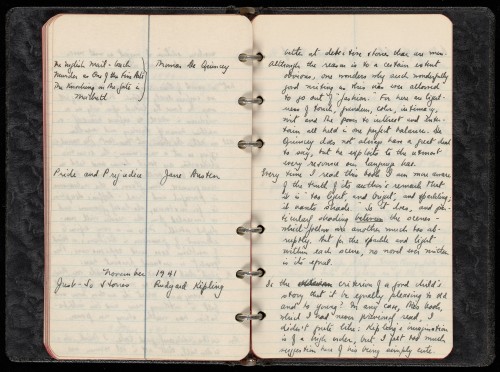 The English Mail-Coach
Murder as One of the Fine Arts
The Knocking on the Gate in
Macbeth
Thomas De Quincey
Pride and Prejudice
Jane Austen
November 1941
Just-So Stories
Rudyard Kipling
better at detective stories than are men.
Although the reason is to a certain extent
obvious, one wonders why such wonderfully
good writing as this was ever allowed
to go out of "fashion." For here are light-
ness of touch, wisdom, color, intimacy,
wit and the power to interest and enter-
tain all held in one perfect balance. De
Quincey does not always have a great deal
to say, but he exploits to the utmost
every resource our language has.
Every time I read this book I am more aware
of the truth of its author's remark that
it is "too light, and bright, and sparkling;
it wants shade." So it does, and par-
ticularly shading between the scenes—
which follow one another much too ab-
ruptly. But for the sparkle and light
within each scene, no novel ever written
is its equal.
Is the criterion of a good child's
story that it be equally pleasing to old
and to young? In any case, this book,
which I had never previously read, I
didn't quite like. Kipling's imagination
is of a high order, but I get too much
suggestion here of his being simply cute.